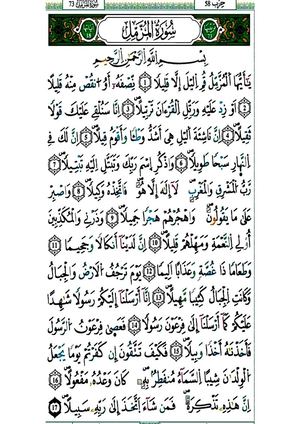 حزب 58
73 سورة المزمل
سُورَةُ الْمُزَّمِّلِ
بِسْمِ اللَّهِ الرَّحْمَنِ الرَّحِيمِ
يَا أَيُّهَا الْمُزَّمِّلُ قُمِ الَّيْلَ إِلَّا قَلِيلًا ① نِّصْفَهُ أَوُ انقُصْ مِنْهُ قَلِيلًا
② أَوْ زِدْ عَلَيْهِ وَرَتِّلِ الْقُرْءَانَ تَرْتِيلًا ③ إِنَّا سَنُلْقِي عَلَيْكَ قَوْلًا
ثَقِيلًا ④ إِنَّ نَاشِئَةَ الَّيْلِ هِيَ أَشَدُّ وَطْئًا وَأَقْوَمُ قِيلًا ⑤ إِنَّ لَكَ فِي
النَّهَارِ سَبْحًا طَوِيلًا ⑥ وَاذْكُرِ اسْمَ رَبِّكَ وَتَبَتَّلْ إِلَيْهِ تَبْتِيلًا ⑦
رَّبُّ الْمَشْرِقِ وَالْمَغْرِبِ لَا إِلَهَ إِلَّا هُوَ فَاتَّخِذْهُ وَكِيلًا ⑧ وَاصْبِرْ
عَلَى مَا يَقُولُونَ وَاهْجُرْهُمْ هَجْرًا جَمِيلًا ⑨ وَذَرْنِي وَالْمُكَذِّبِينَ
أُولِي النَّعْمَةِ وَمَهِّلْهُمْ قَلِيلًا ⑩ إِنَّ لَدَيْنَا أَنكَالًا وَجَحِيمًا ⑪
وَطَعَامًا ذَا غُصَّةٍ وَعَذَابًا أَلِيمًا ⑫ يَوْمَ تَرْجُفُ الْأَرْضُ وَالْجِبَالُ
وَكَانَتِ الْجِبَالُ كَثِيبًا مَّهِيلًا ⑬ إِنَّا أَرْسَلْنَا إِلَيْكُمْ رَسُولًا شَاهِدًا
عَلَيْكُمْ كَمَا أَرْسَلْنَا إِلَى فِرْعَوْنَ رَسُولًا ⑭ فَعَصَى فِرْعَوْنُ الرَّسُولَ
فَأَخَذْنَاهُ أَخْذًا وَبِيلًا ⑮ فَكَيْفَ تَتَّقُونَ إِن كَفَرْتُمْ يَوْمًا يَجْعَلُ
الْوِلْدَانَ شِيبًا السَّمَاءُ مُنفَطِرٌ بِهِ كَانَ وَعْدُهُ مَفْعُولًا ⑯
إِنَّ هَذِهِ تَذْكِرَةٌ فَمَن شَاءَ اتَّخَذَ إِلَى رَبِّهِ سَبِيلًا ⑰